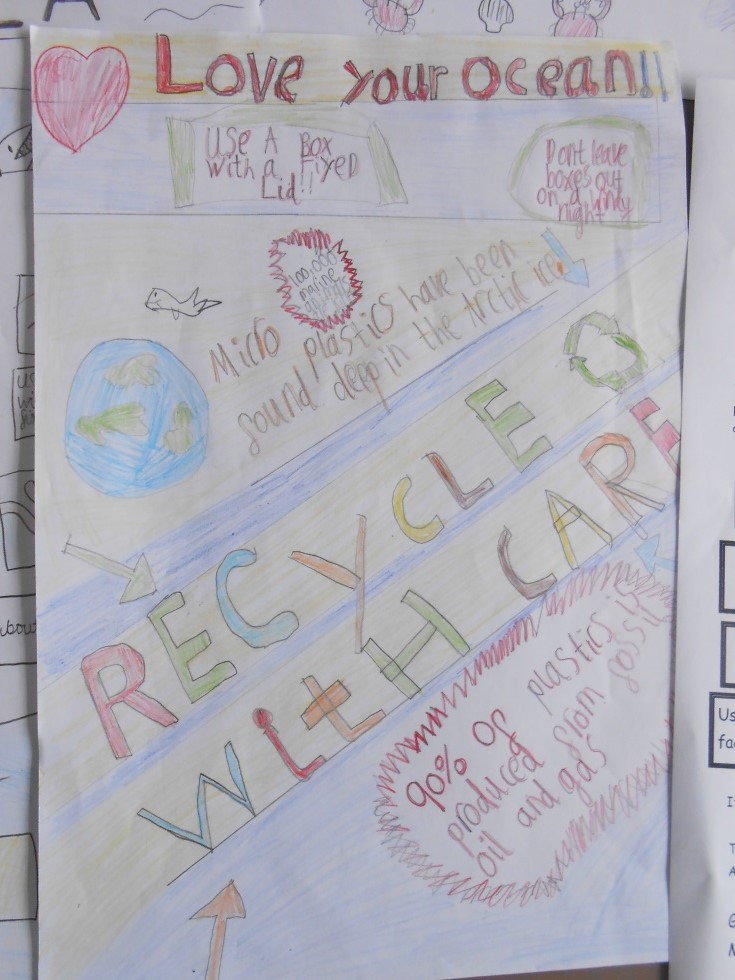 Love your ocean!!
USE A BOX
with a Fixed
Lid!!
Dont leave
boxes out
on a windy
night
100,000
marine
animals
Micro plastics have been
found deep in the Arctic ice.
RECYCLE
WITH CARE
90% of plastics is
produced from fossil
oil and gas
Us
fac